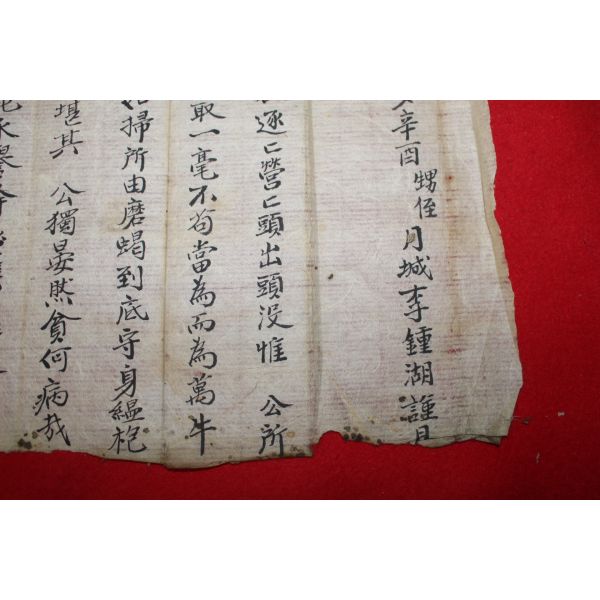 辛酉 甥侄 月城李鍾湖謹
逐〻營〻頭出頭没惟 公所
取一毫不苟當為而為萬牛
掃所由磨蝎到底守身縕袍
堪其 公獨晏然貧何病哉